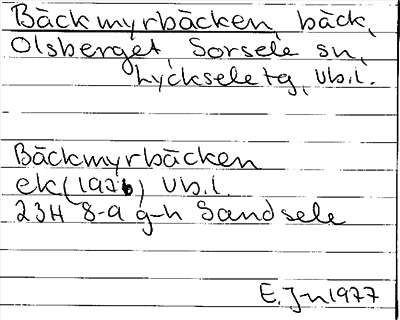 Bäckmyrbäcken, bäck,
Olsberget, Sorsele sn,
Lycksele tg, Vb.l.
Bäckmyrbäcken
ek (1976) Vb.l.
23H 8-9 g-h Sandsele
E. J-n 1977